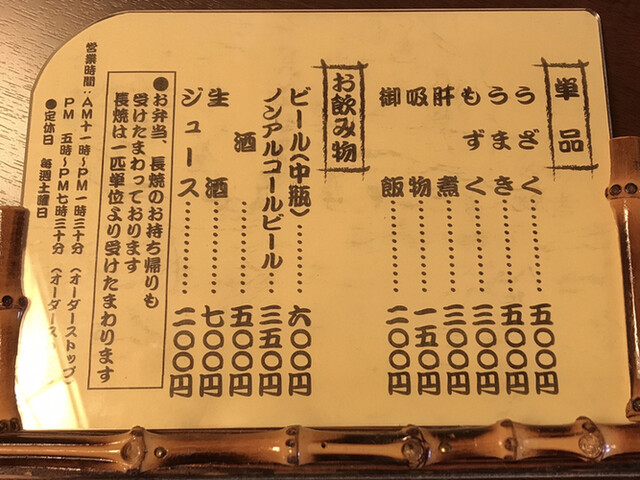 単品
うざく…………五〇〇円
うまき…………五〇〇円
もずく…………三〇〇円
肝煮…………三〇〇円
吸物…………一五〇円
御飯…………二〇〇円
お飲み物
ビール(中瓶)…………六〇〇円
ノンアルコールビール……三五〇円
酒…………五〇〇円
生酒…………七〇〇円
ジュース…………二〇〇円
●お弁当、長焼のお持ち帰りも
受けたまわっております
長焼は一匹単位より受けたまわります
営業時間:AM十一時~PM一時三十分(オーダーストップ)
PM 五時~PM七時三十分(オーダース
●定休日 毎週土曜日